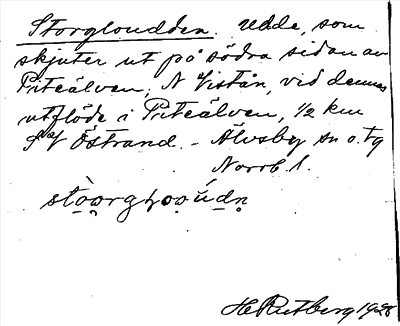 Storgloudden. Udde, som
skjuter ut på södra sidan av
Piteälven, N Vistån, vid dennas
utflöde i Piteälven, 1/2 km
S af Östrand. - Älvsby sn o. tg
Norrb. l.
H Rutberg 1928